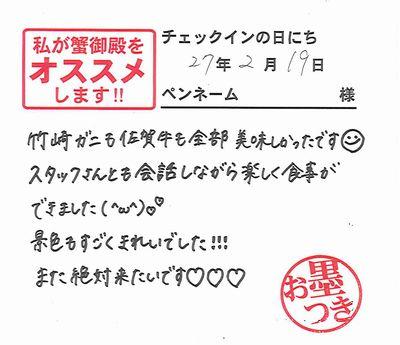 私が蟹御殿を
オススメ
します!!
チェックインの日にち
27年2月19日
ペンネーム 様
竹崎ガニも佐賀牛も全部美味しかったです☺
スタッフさんとも会話しながら楽しく食事が
できました(^ω^)♡
景色もすごくきれいでした!!!
また絶対来たいです♡♡♡
お墨つき